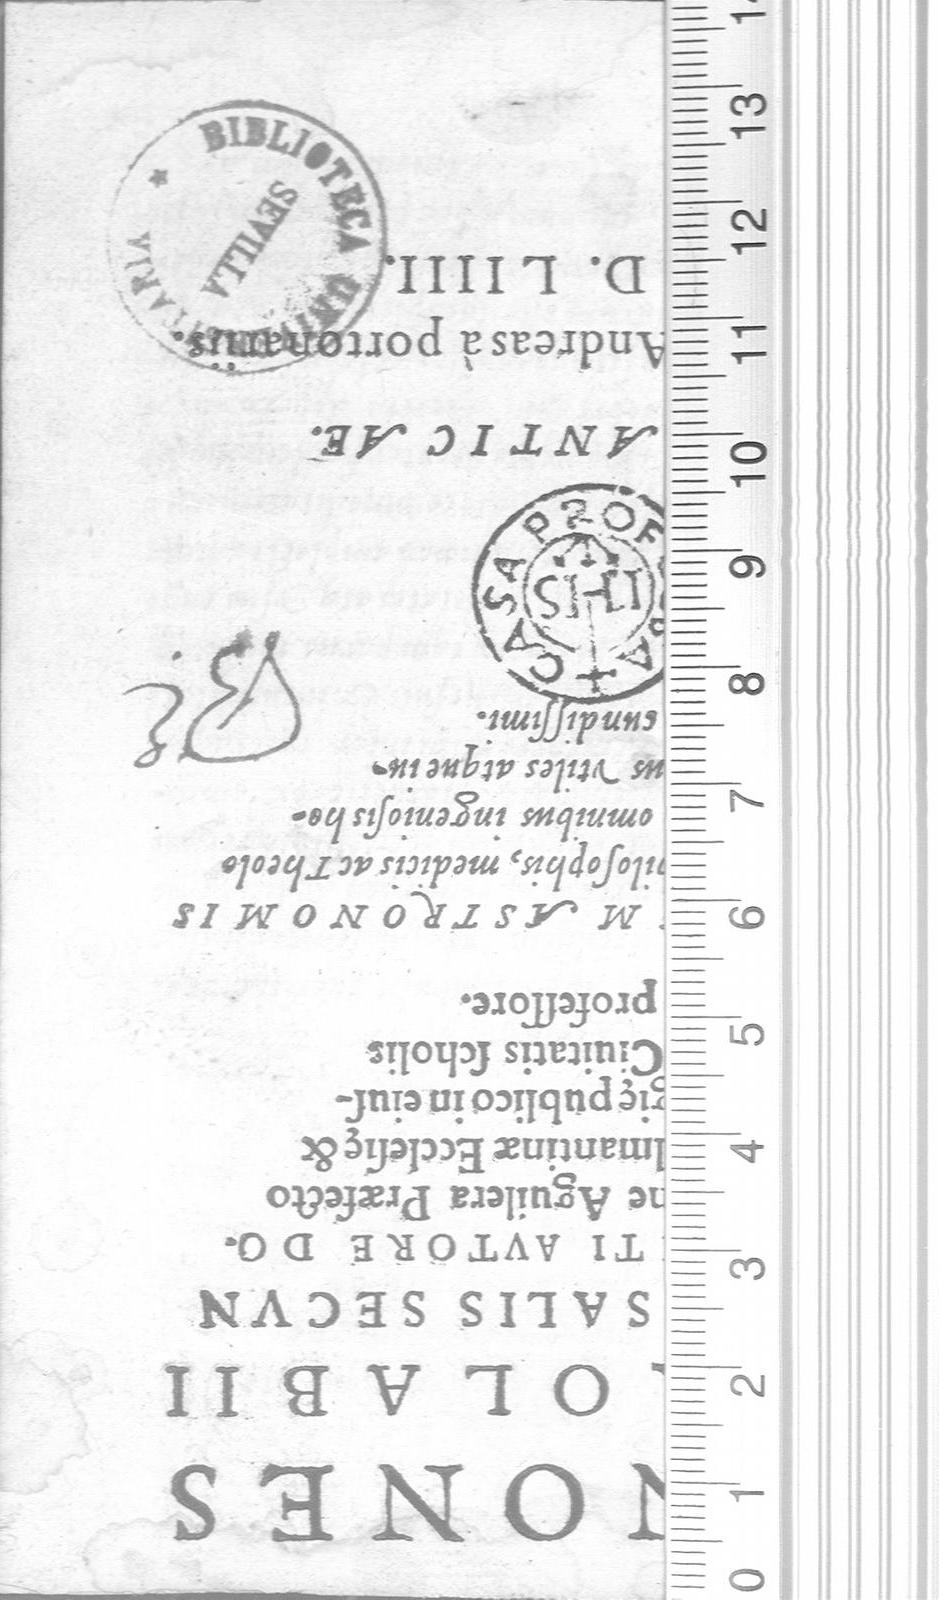 NONES
OLABII
SALIS SECVN
TI AVTORE DO.
ne Aguilera Præfecto
lmantinæ Eccleſię &
gię publico in eiuſ-
Ciuitatis ſcholis
profeſſore.
M ASTRONOMIS
iloſophis, medicis ac Theolo
omnibus ingenioſis ho-
us vtiles atque iu-
cundiſſimi.
CASA PROF
IHS
ANTICAE.
Andreas à portonariis.
D. LIIII.
BIBLIOTECA
SEVILLA
0 1 2 3 4 5 6 7 8 9 10 11 12 13 14